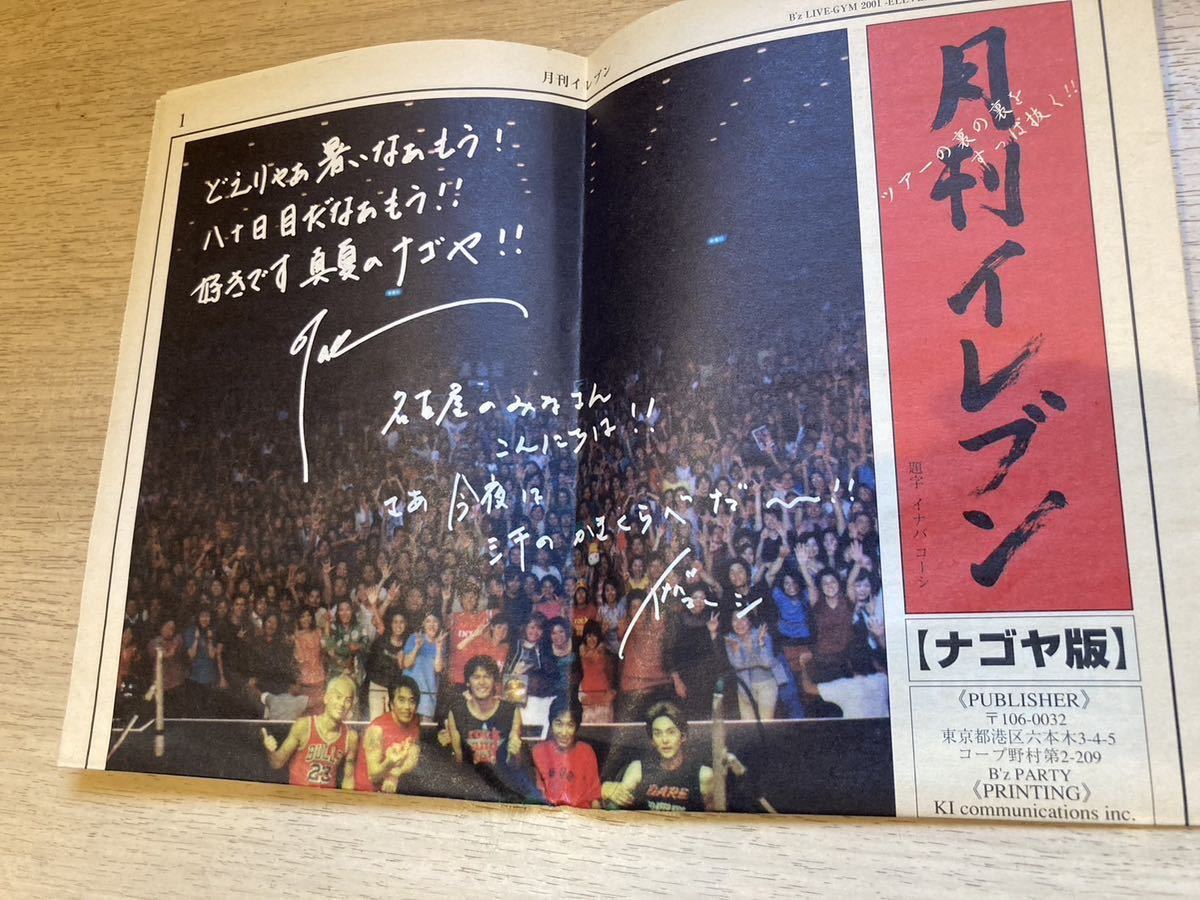 B'z LIVE-GYM 2001 -ELEVE
月刊イレブン
1
月刊イレブン
ツアーの裏の裏を
すっぱ抜く!!
題字 イナバ コーシ
どえりゃあ暑いなぁもう!
八十日目だなぁもう!!
好きです真夏のナゴヤ!!
Tak
名古屋のみなさん
こんにちは!!
さあ今夜は
三千のかまくらべだ〜!!
イナバコーシ
【ナゴヤ版】
《PUBLISHER》
〒106-0032
東京都港区六本木3-4-5
コープ野村第2-209
B'z PARTY
《PRINTING》
KI communications inc.
BULLS
23
DARE